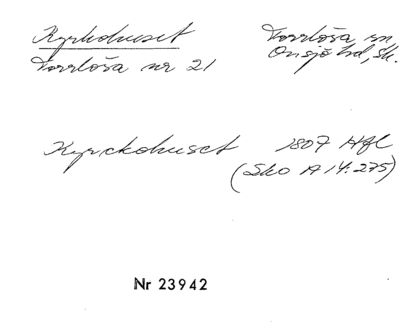 Kyrkohuset
Torrlösa sn
Torrlösa nr 21
Onsjö hd, Sk.
Kyrckohuset 1807 Hfl
(Sko A I 4:275)
Nr 23942